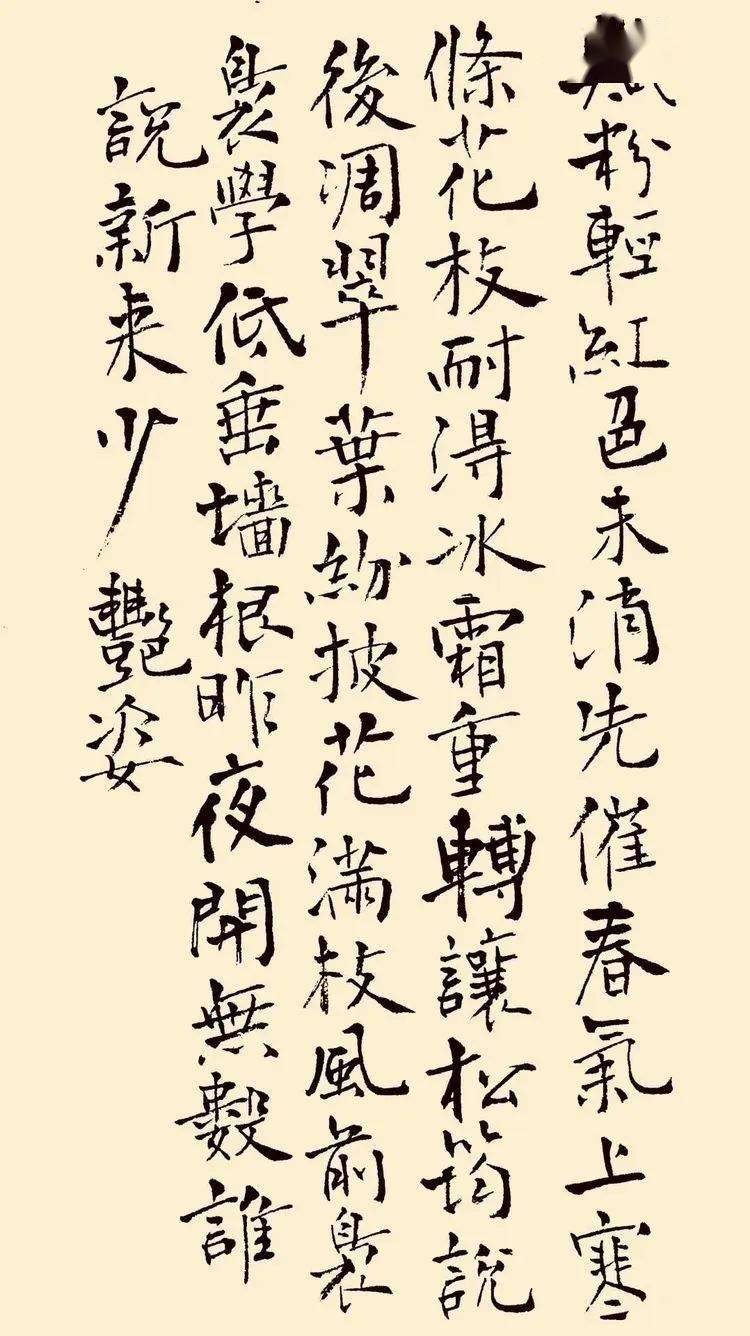 粉輕紅色未消先催春氣上寒
條花枝耐得冰霜重轉讓松筠說
後凋翠葉紛披花滿枝風前裊
裊學低垂墻根昨夜開無數誰
說新来少艷姿